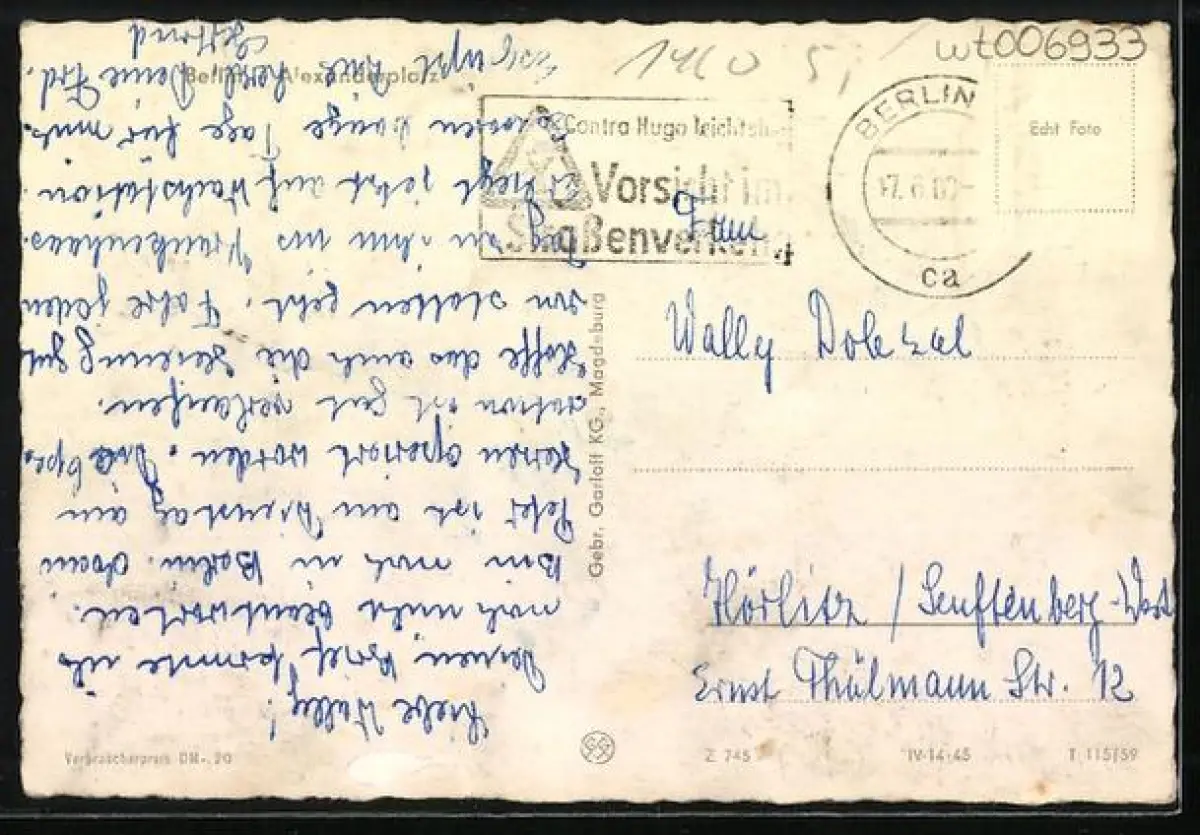 wt006933
1410 5,
Berlin, Alexanderplatz
BERLIN
17.6.60
ca
Echt Foto
Contra Hugo Leichtsinn
Vorsicht im
Straßenverkehr
Frau
Wally Dolezal
Hörlitz / Senftenberg-West
Ernst Thälmann Str. 12
Liebe Wally!
Deinen Brief konnte ich
noch nicht beantworten.
Bin noch in Berlin.
Peter ist am Dienstag am
Herzen operiert worden. Die Ope-
ration ist gut verlaufen.
Hoffe das auch die Heilung gut
von statten geht. Fahre jeden
Tag zu ihm ins Krankenhaus.
Er liegt jetzt auf Wachstation.
Tage für mich.
grüßt Dich herzl. Deine Frd.
Gebr. Garloff KG., Magdeburg
Verbraucherpreis DM -,20
Z 745
IV-14-45
T 115/59